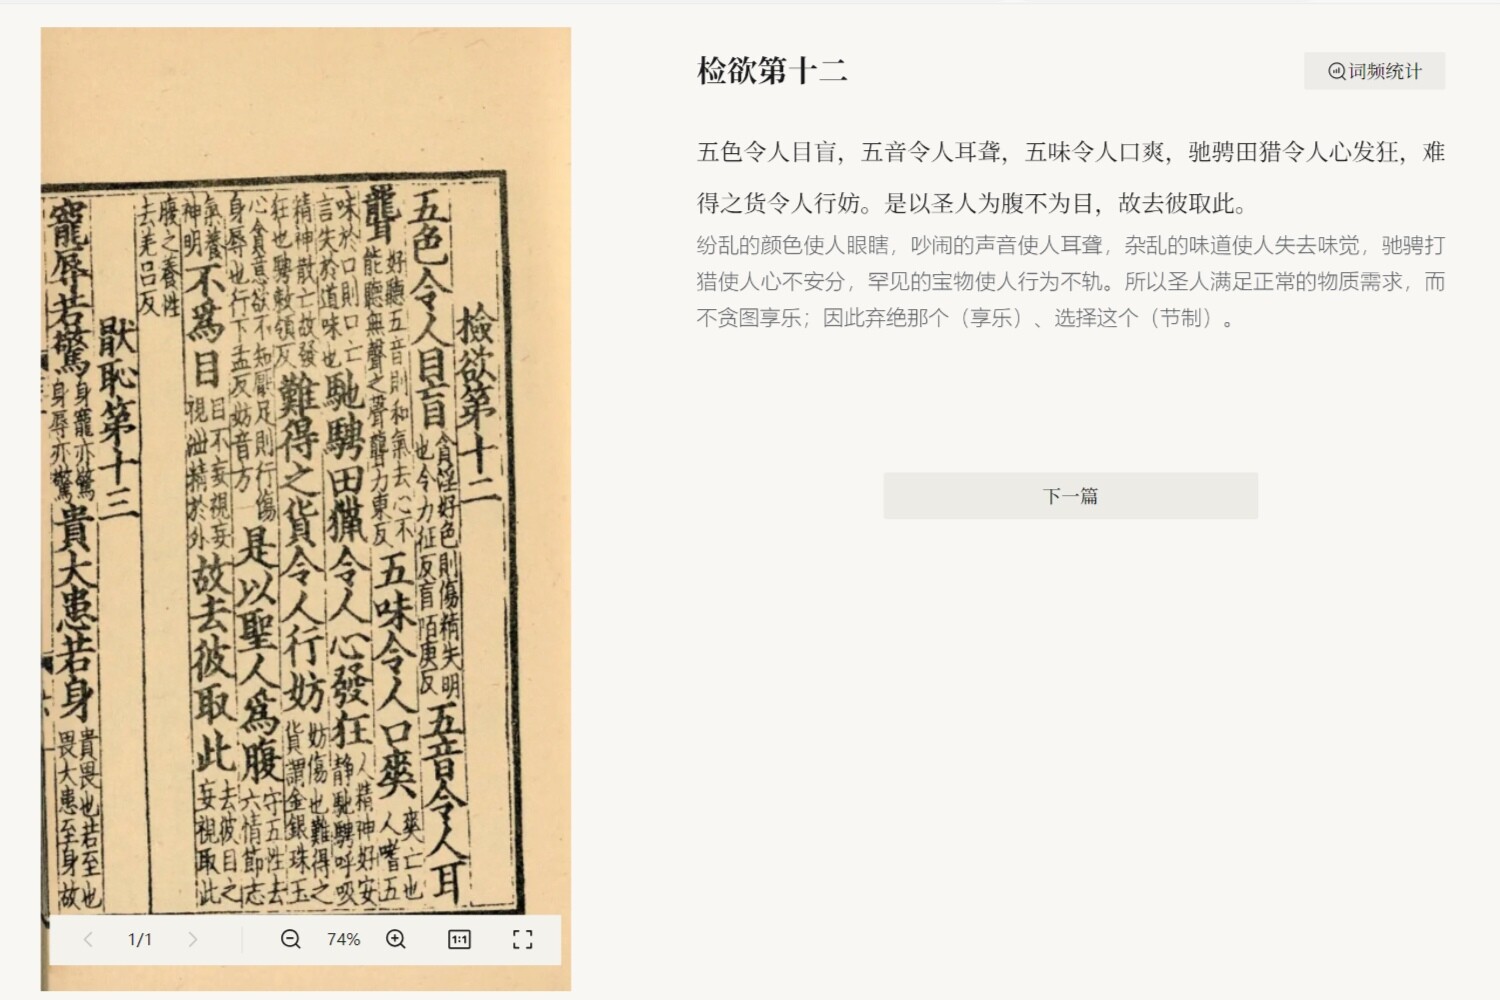 檢欲第十二
五色令人目盲貪淫好色則傷精失明也令力征反盲陌庚反五音令人耳
聾好聽五音則和氣去心不能聽無聲之聲聾力東反五味令人口爽爽亡也人嗜五
味於口則口亡言失於道味也馳騁田獵令人心發狂人精神好安静馳騁呼吸
精神散亡故發狂也騁敕領反難得之貨令人行妨妨傷也難得之貨謂金銀珠玉
心貪意欲不知厭足則行傷身辱也行下孟反妨音方是以聖人爲腹守五性去六情節志
氣養神明不爲目目不妄視妄視泄精於外故去彼取此去彼目之妄視取此
腹之養性去羌呂反
猒恥第十三
寵辱若驚身寵亦驚身辱亦驚貴大患若身貴畏也若至也畏大患至身故
1/1
74%
1:1
检欲第十二
词频统计
五色令人目盲，五音令人耳聋，五味令人口爽，驰骋田猎令人心发狂，难
得之货令人行妨。是以圣人为腹不为目，故去彼取此。
纷乱的颜色使人眼瞎，吵闹的声音使人耳聋，杂乱的味道使人失去味觉，驰骋打
猎使人心不安分，罕见的宝物使人行为不轨。所以圣人满足正常的物质需求，而
不贪图享乐；因此弃绝那个（享乐）、选择这个（节制）。
下一篇